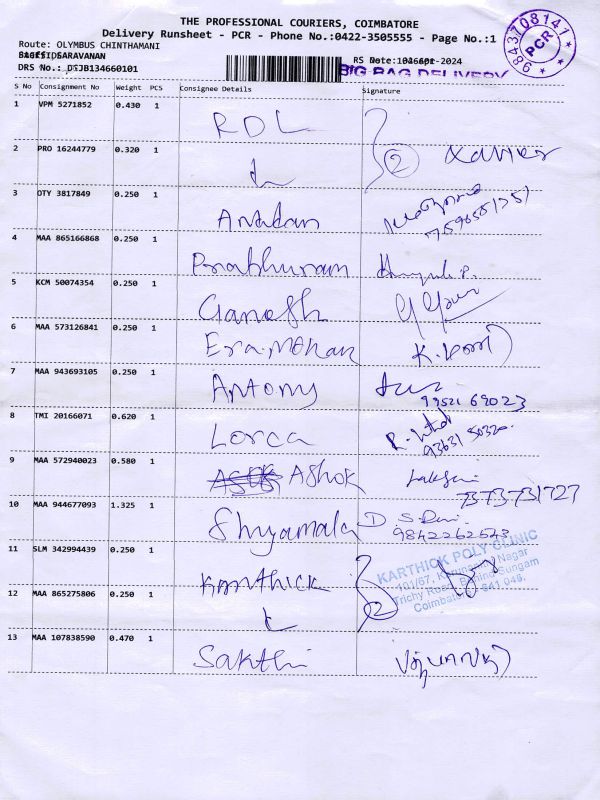 THE PROFESSIONAL COURIERS, COIMBATORE
Delivery Runsheet - PCR - Phone No.:0422-3505555 - Page No.:1
Route: OLYMBUS CHINTHAMANI
SARAVANAN
RS Date: -2024
DRS No.: DSJB134660101
BIG BAG DELIVERY
9843708141
PCR
S No Consignment No Weight PCS Consignee Details Signature
1 VPM 5271852 0.430 1 RDL
2 PRO 16244779 0.320 1 2 Xavier
3 OTY 3817849 0.250 1 Anadan
4 MAA 865166868 0.250 1 Prabhuram
5 KCM 50074354 0.250 1 Ganesh
6 MAA 573126841 0.250 1 Era.Mohan
7 MAA 943693105 0.250 1 Antony
99521 69023
8 TMI 20166071 0.620 1 Lorca
93631 50320
9 MAA 572940023 0.580 1 Ashok
7373731727
10 MAA 944677093 1.325 1 Shyamala D
9842262543
11 SLM 342994439 0.250 1 Karthick
KARTHICK POLY CLINIC
Nagar
Trichy Road, Sungam
Coimbatore 641 045.
12 MAA 865275806 0.250 1 2
13 MAA 107838590 0.470 1 Sakthi